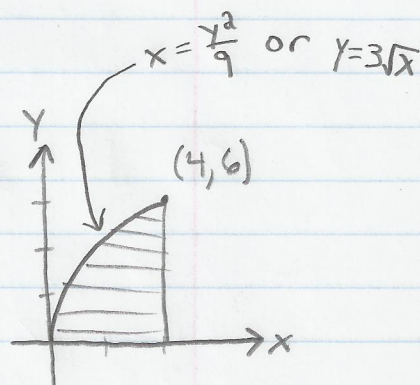 x = y²/9 or y=3√x
Y
(4,6)
X